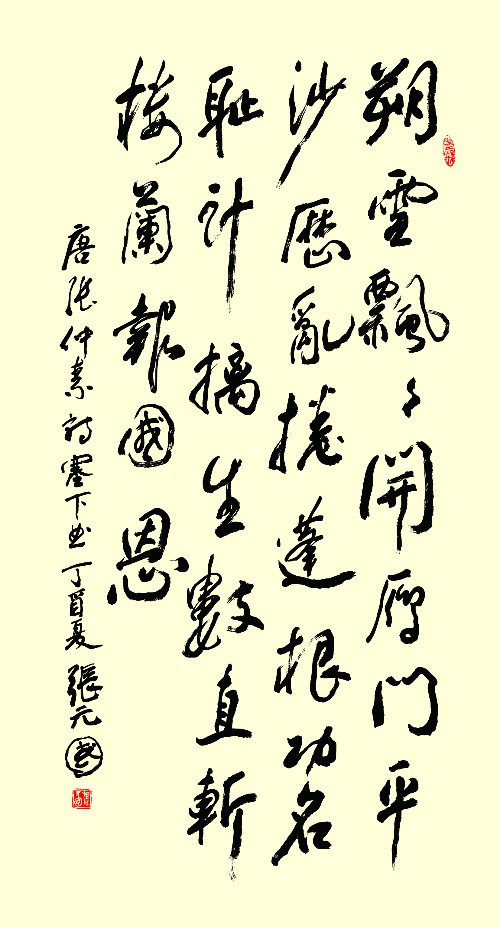 朔雪飄々開雁門平
沙歷亂捲蓬根功名
耻計擒生數直斬
楼蘭報國恩
唐張仲素詩塞下曲丁酉夏張元國